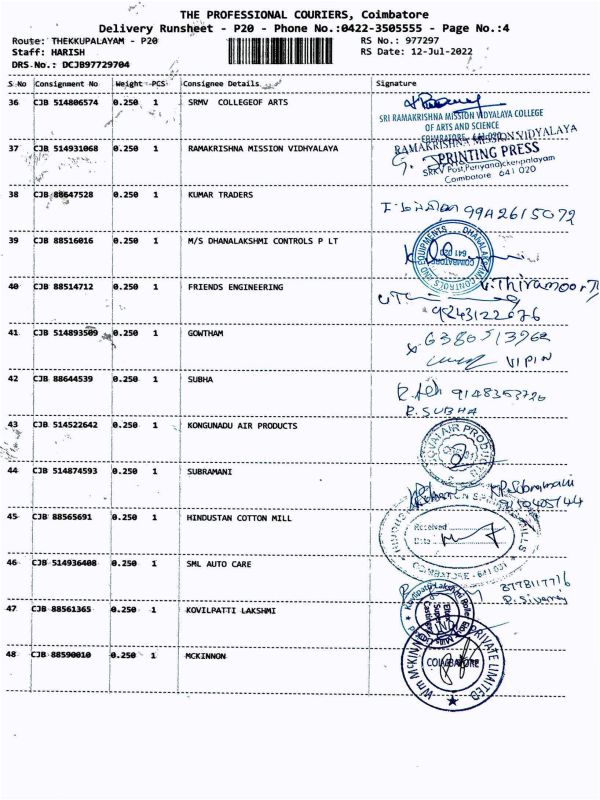 THE PROFESSIONAL COURIERS, Coimbatore
Delivery Runsheet - P20 - Phone No.:0422-3505555 - Page No.:4
Route: THEKKUPALAYAM - P20 RS No.: 977297
Staff: HARISH RS Date: 12-Jul-2022
DRS.No.: DCJB97729704
S No Consignment No Weight PCS Consignee Details Signature
36 CJB 514806574 0.250 1 SRMV COLLEGEOF ARTS
SRI RAMAKRISHNA MISSION VIDYALAYA COLLEGE
OF ARTS AND SCIENCE
COIMBATORE - 641 020
37 CJB 514931068 0.250 1 RAMAKRISHNA MISSION VIDHYALAYA
RAMAKRISHNA MISSION VIDYALAYA
PRINTING PRESS
SRKV Post, Perianaickenpalayam
Coimbatore 641 020
38 CJB 88647528 0.250 1 KUMAR TRADERS
9942615072
39 CJB 88516016 0.250 1 M/S DHANALAKSHMI CONTROLS P LT
COIMBATORE
641 020
40 CJB 88514712 0.250 1 FRIENDS ENGINEERING
V.Thiramoor
9843122676
41 CJB 514893509 0.250 1 GOWTHAM
6380513962
VIPIN
42 CJB 88644539 0.250 1 SUBHA
9148353726
R.SUBHA
43 CJB 514522642 0.250 1 KONGUNADU AIR PRODUCTS
44 CJB 514874593 0.250 1 SUBRAMANI
KP.Subramani
45 CJB 88565691 0.250 1 HINDUSTAN COTTON MILL
Received
Date
COIMBATORE - 641 031
46 CJB 514936408 0.250 1 SML AUTO CARE
47 CJB 88561365 0.250 1 KOVILPATTI LAKSHMI
48 CJB 88590010 0.250 1 MCKINNON
COIMBATORE
PRIVATE LIMITED